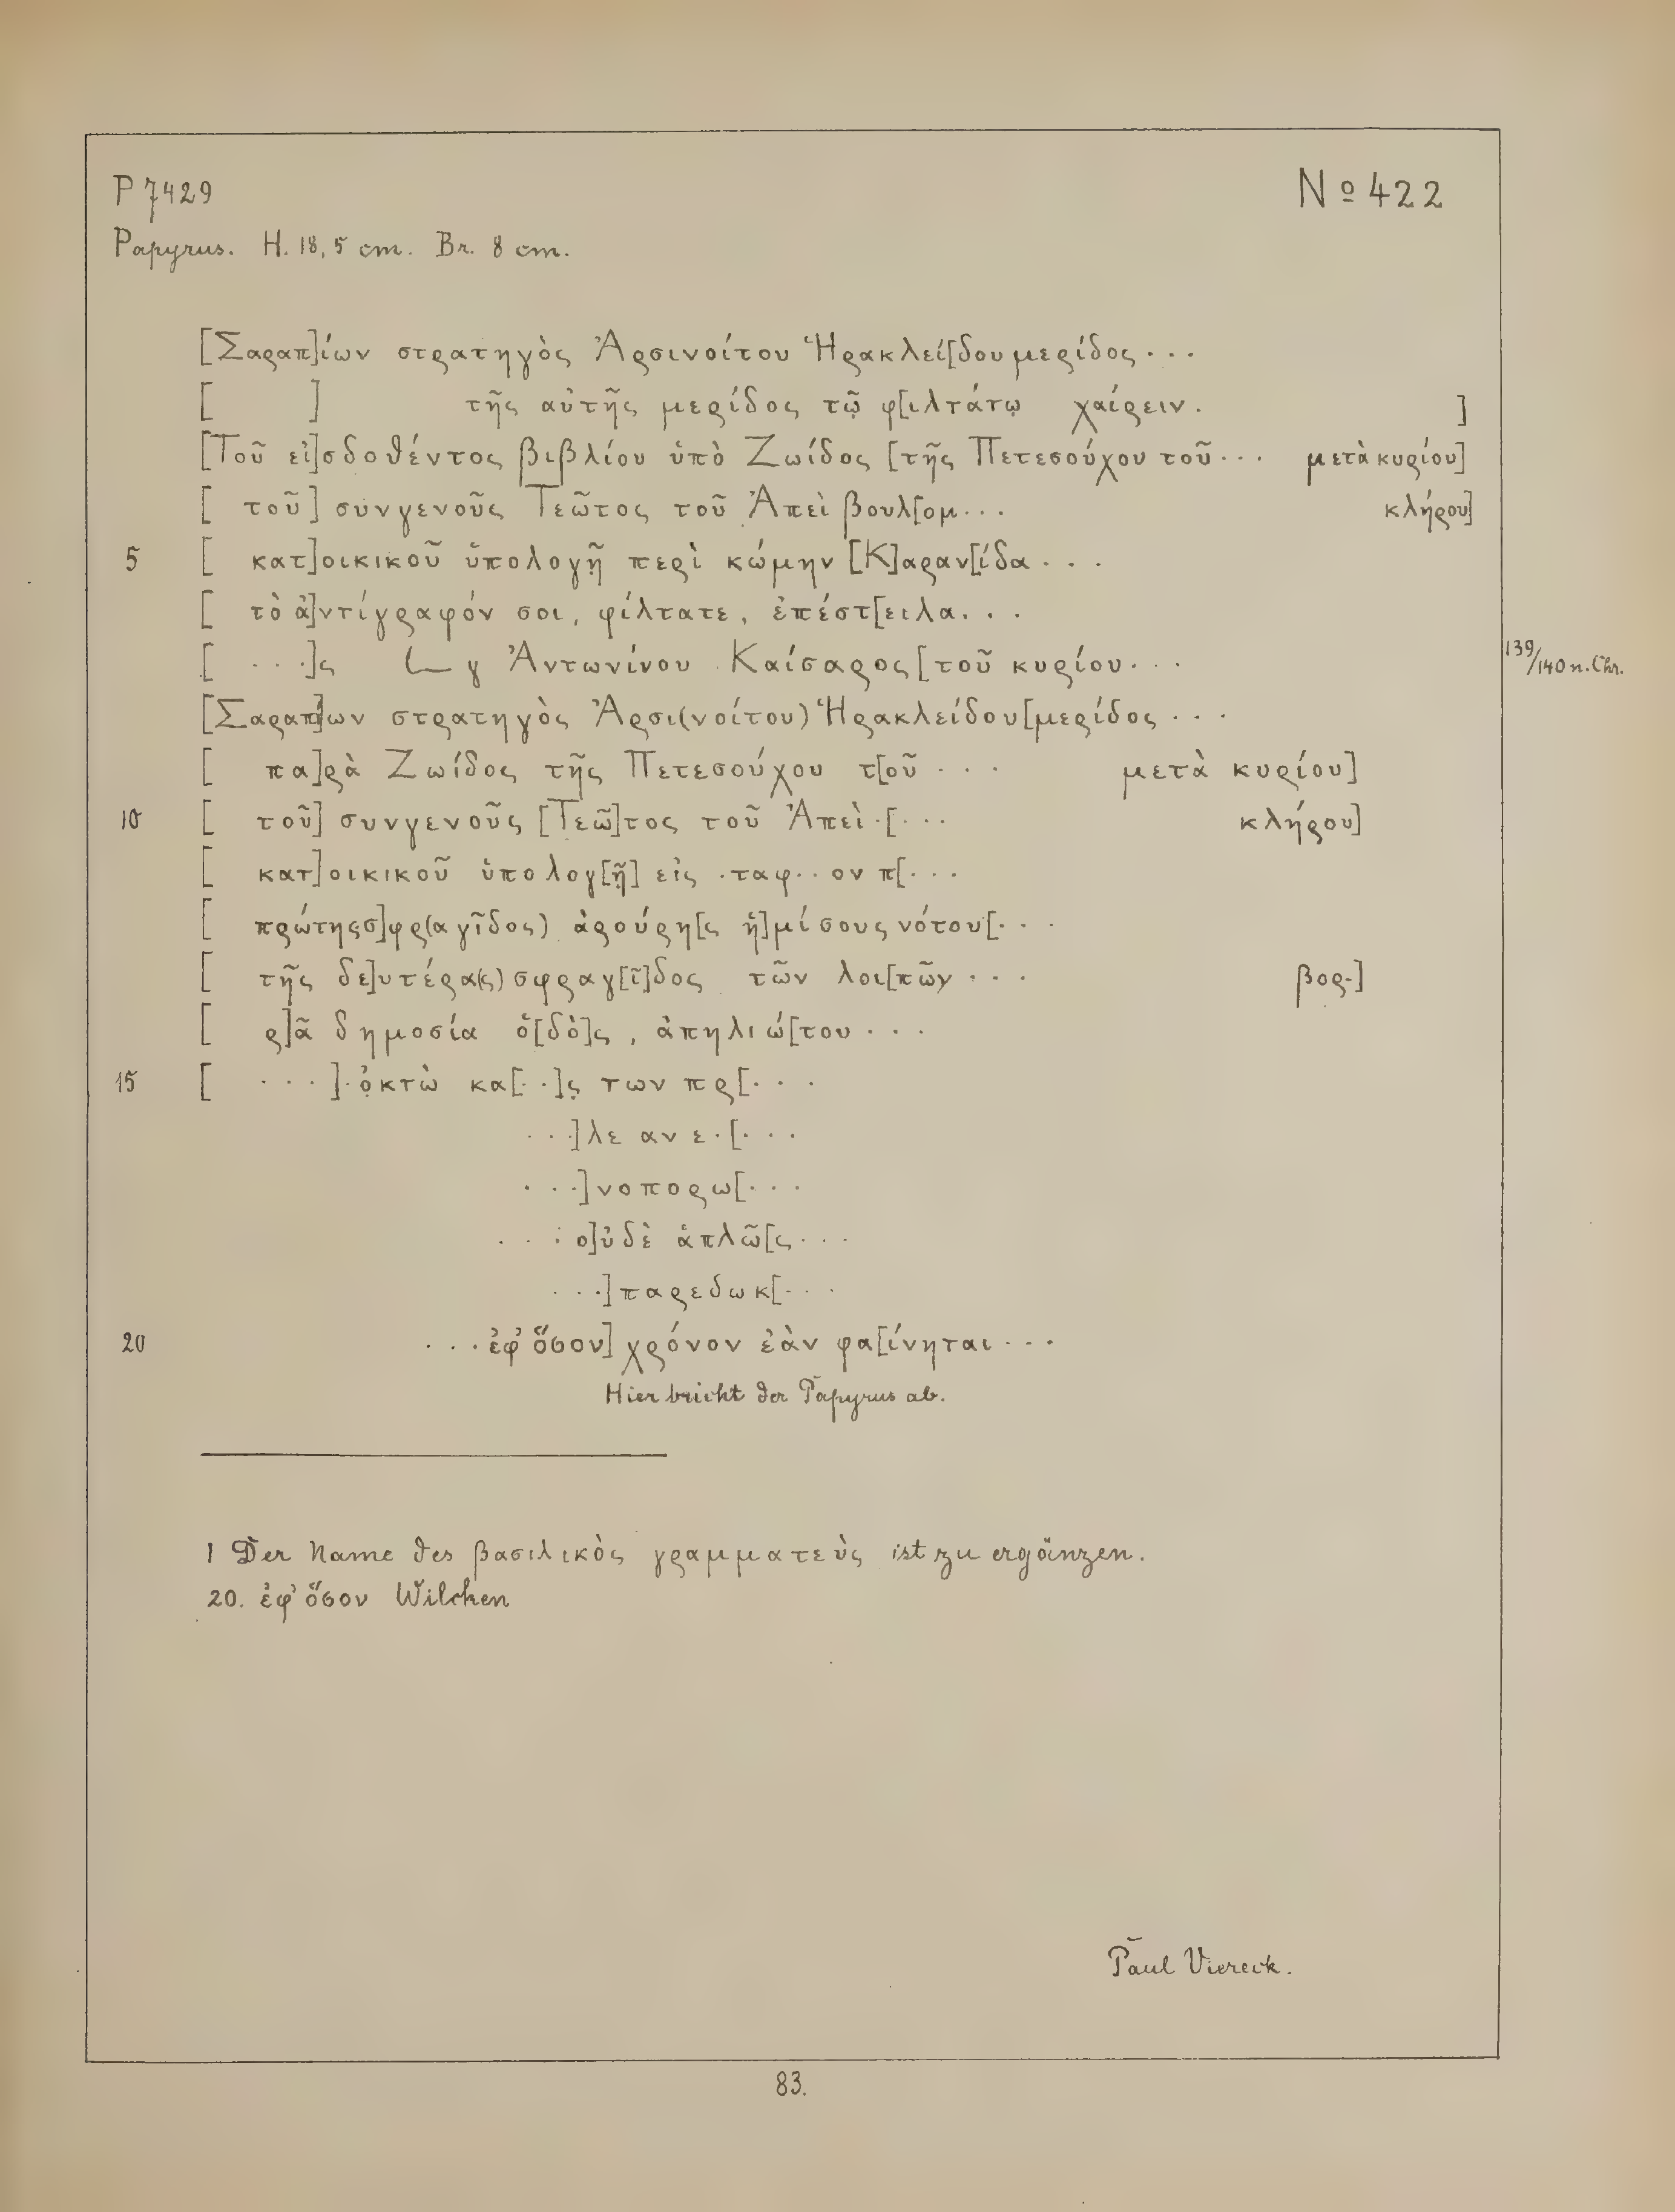 P 7429
Nº 422
Papyrus. H. 18,5 cm. Br. 8 cm.
[Σαραπ]ίων στρατηγὸς Ἀρσινοίτου Ἡρακλεί[δου μερίδος . . .
[ ] τῆς αὐτῆς μερίδος τῷ φ[ιλτάτῳ χαίρειν. ]
[Τοῦ εἰ]σδοθέντος βιβλίου ὑπὸ Ζωίδος [τῆς Πετεσούχου τοῦ . . . μετὰ κυρίου]
[ τοῦ] συνγενοῦς Τεῶτος τοῦ Ἀπεὶ βουλ[ομ . . . κλήρου]
5 [ κατ]οικικοῦ ὑπολογῇ περὶ κώμην [Κ]αραν[ίδα . . .
[ τὸ ἀ]ντίγραφόν σοι, φίλτατε, ἐπέστ[ειλα. . .
[ . . .]ς L γ Ἀντωνίνου Καίσαρος [τοῦ κυρίου . . .
139/140 n. Chr.
[Σαραπί]ων στρατηγὸς Ἀρσι(νοίτου) Ἡρακλείδου [μερίδος . . .
[ πα]ρὰ Ζωίδος τῆς Πετεσούχου τ[οῦ . . . μετὰ κυρίου]
10 [ τοῦ] συνγενοῦς [Τεῶ]τος τοῦ Ἀπεὶ . [. . . κλήρου]
[ κατ]οικικοῦ ὑπολογ[ῇ] εἰς .ταφ. . ον π[. . .
[ πρώτης σ]φρ(αγῖδος) ἀρούρη[ς ἡ]μίσους νότου [. . .
[ τῆς δε]υτέρα(ς) σφραγ[ῖ]δος τῶν λοι[πῶν . . . βορ-]
[ ρ]ᾶ δημοσία ὁ[δὸ]ς, ἀπηλιώ[του . . .
15 [ . . . ] . ὀκτὼ κα[. .]ς των πρ[. . .
. . .]λε αν ε . [. . .
. . .]νοπορω[. . .
. . . ο]ὐδὲ ἁπλῶ[ς . . .
. . .]παρεδωκ[. . .
20 . . . ἐφ' ὅσον] χρόνον ἐὰν φα[ίνηται . . .
Hier bricht der Papyrus ab.
1 Der Name des βασιλικὸς γραμματεὺς ist zu ergänzen.
20. ἐφ' ὅσον Wilcken
Paul Viereck.
83.